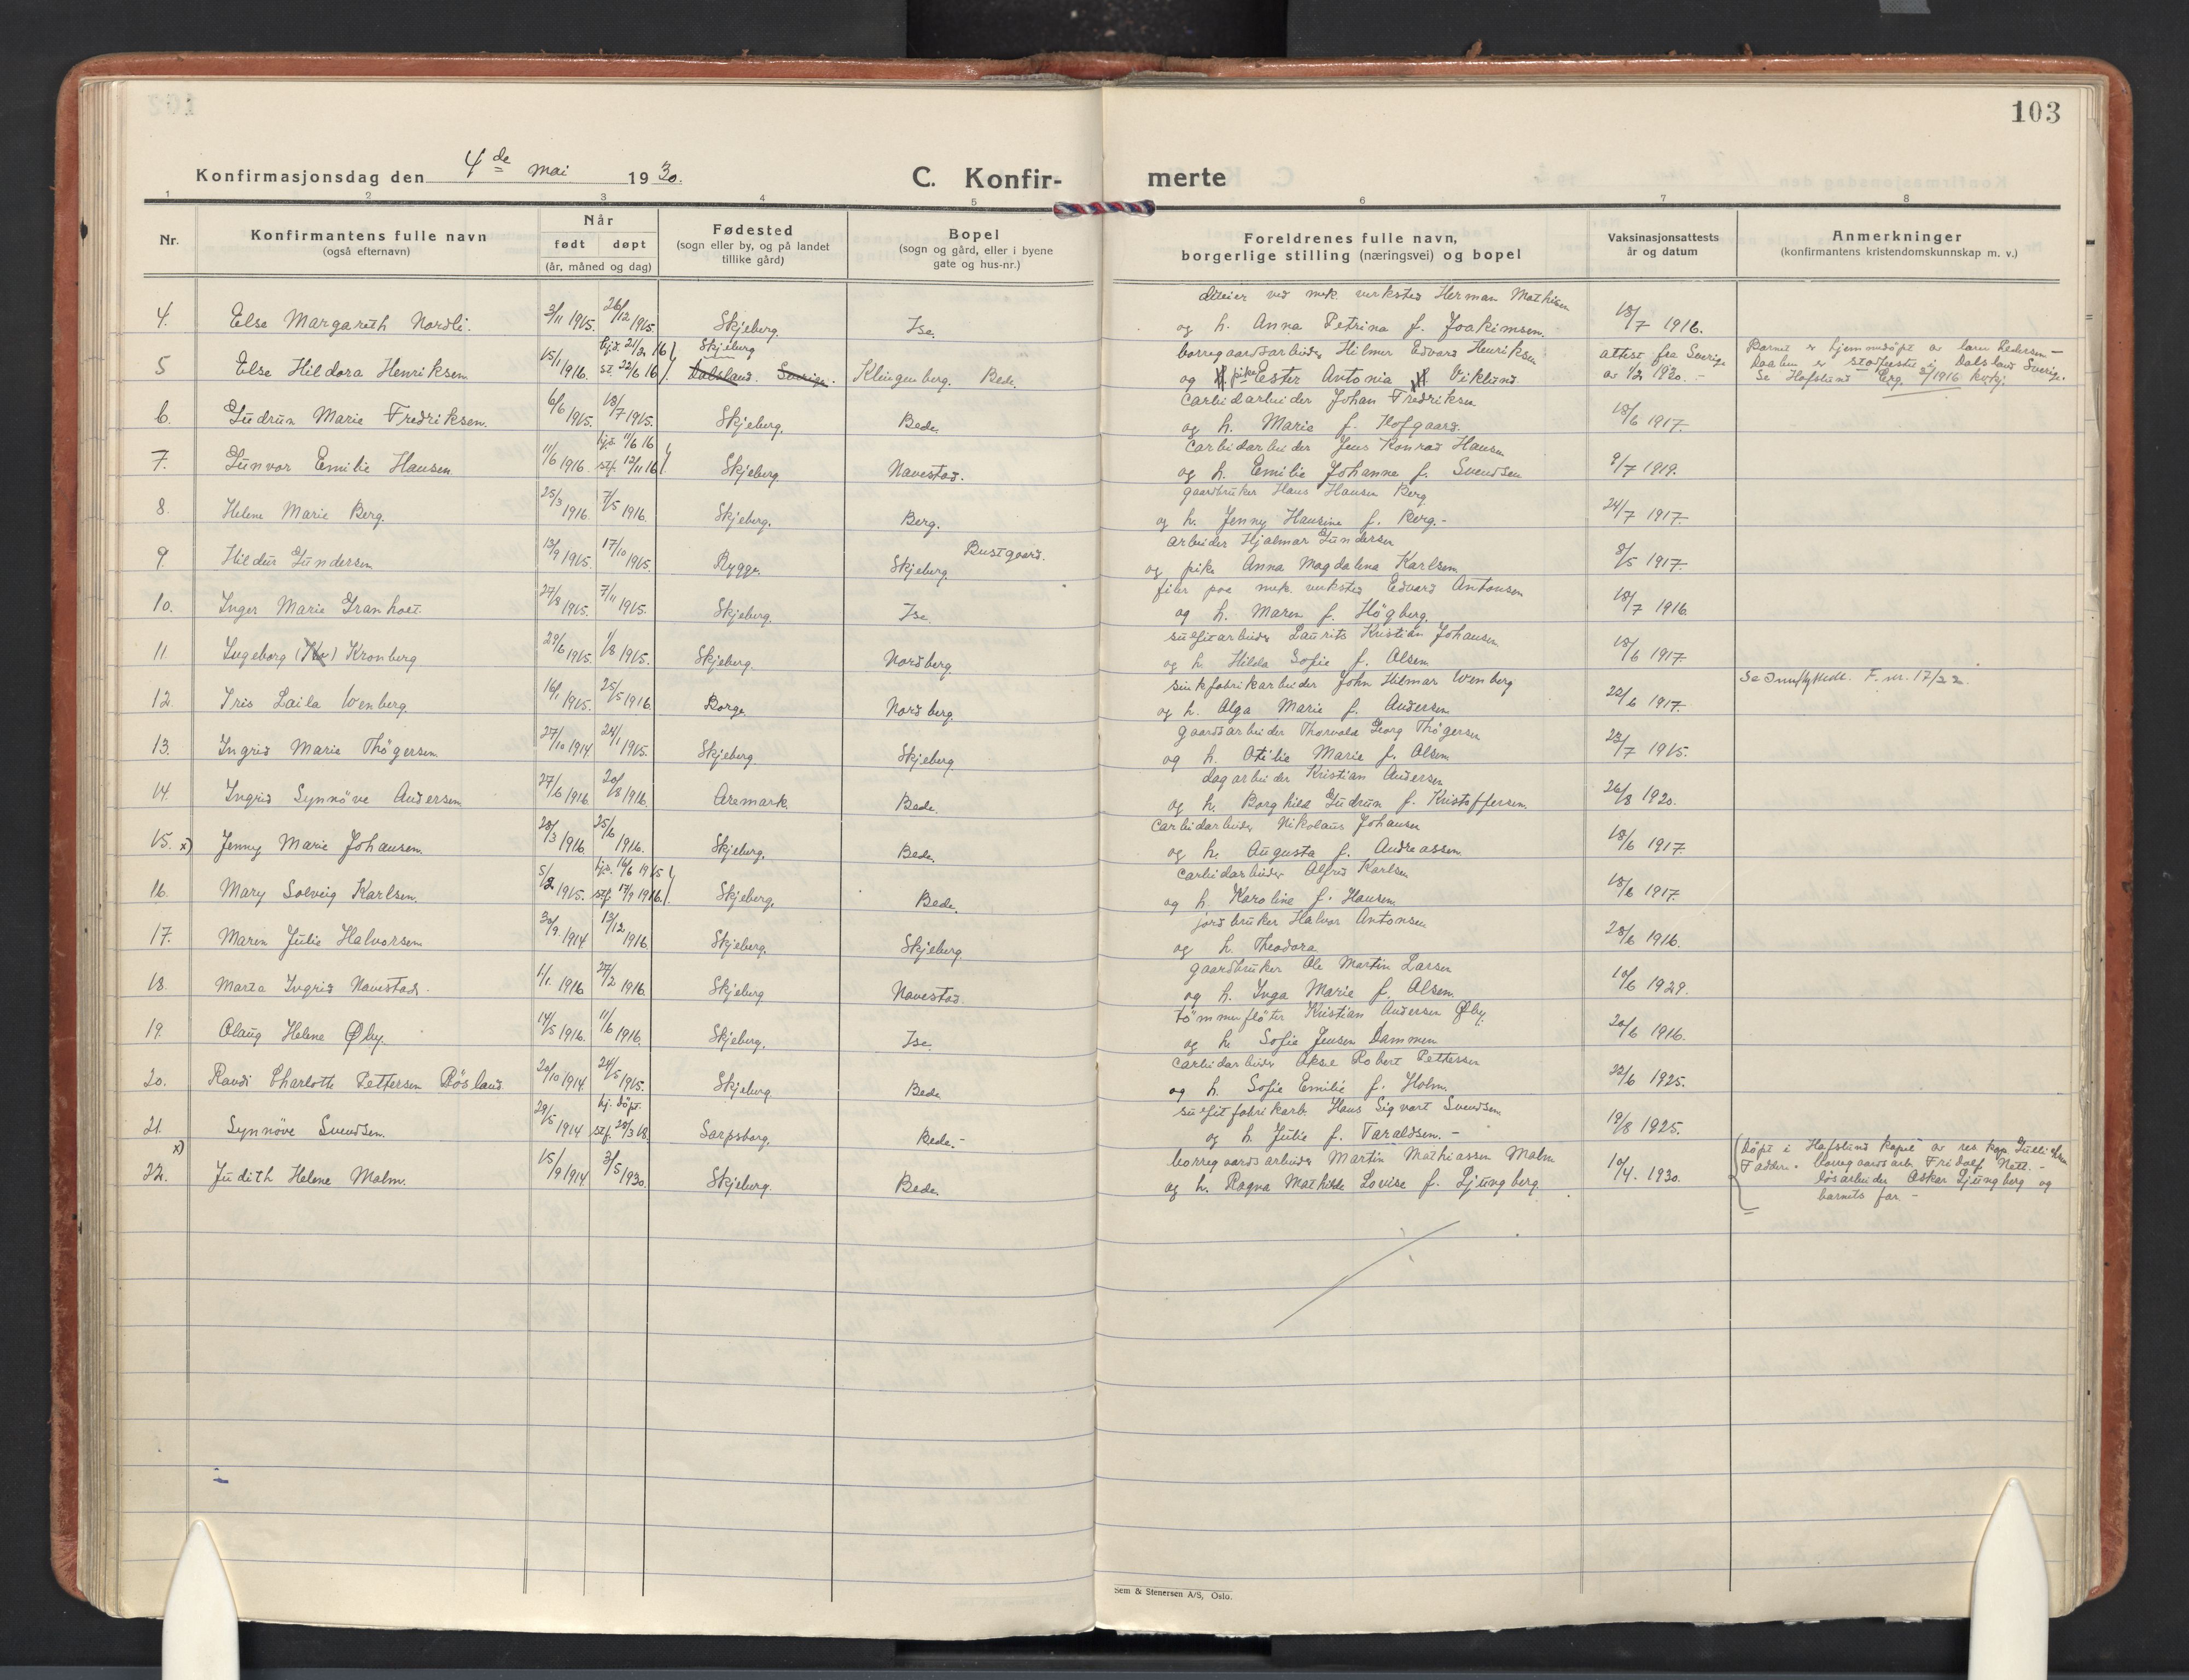 103
Konfirmasjonsdag den 4de mai 1930.
C. Konfir-
merte
1 2 3 4 5 6 7 8
Nr.
Konfirmantens fulle navn
(også efternavn)
Når
født døpt
(år, måned og dag)
Fødested
(sogn eller by, og på landet
tillike gård)
Bopel
(sogn og gård, eller i byene
gate og hus-nr.)
Foreldrenes fulle navn,
borgerlige stilling (næringsvei) og bopel
Vaksinasjonsattests
år og datum
Anmerkninger
(konfirmantens kristendomskunnskap m. v.)
ved mek. verksted Herman Mathisen
4. Else Margareth Nordli. 3/11 1915. 26/12 1915. Skjeberg. Ise. og h. Anna Petrina f. Joakimsen. 18/7 1916.
hjd. 21/2 16 Skjeberg borregaardsarbeider Hilmer Edvard Henriksen attest fra Sverige Barnet er hjemmedöpt av Pedersen –
5 Else Hildora Henriksen 15/1 1916. st. 22/6 16 Dalsland. Sverige. Klingenberg. Bede. og pike Ester Antonia Viklund. av 1/2 1920. – Daaben er stadfestet i Dalsland Sverige.
Se Hafslund 2/1916
carbidarbeider Johan Fredriksen
6. Gudrun Marie Fredriksen. 6/6 1915. 18/7 1915. Skjeberg. Bede. og h. Marie f. Hofgaard. 18/6 1917.
hjd. 11/6 16 carbidarbeider Jens Konrad Hansen
7. Gunvor Emilie Hansen 11/6 1916. stf. 12/11 16 Skjeberg Navestad. og h. Emilie Johanne f. Svendsen 9/7 1919.
gaardbruker Hans Hansen Berg
8. Helene Marie Berg. 25/3 1916. 7/5 1916. Skjeberg. Berg. og h. Jenny Hansine f. Berg. –
arbeider Hjalmar Gundersen
9. Hildur Gundersen 13/9 1915. 17/10 1915. Rygge. Skjeberg Bustgaard. og pike Anna Magdalena Karlsen 8/5 1917.
24/7 1917.
filer paa mek. verksted Edvard Antonsen
10. Inger Marie Granholt 27/8 1915. 7/11 1915. Skjeberg. Ise. og h. Maren f. Högberg. 18/7 1916.
sulfitarbeider Laurits Kristian Johansen
11 Ingeborg Kronberg 29/6 1915. 1/8 1915. Skjeberg. Nordberg og h. Hilda Sofie f. Olsen 18/6 1917.
sinkfabrikarbeider John Hilmar Wenberg Se Innflyttede. F. nr. 17/22.
12. Iris Laila Wenberg 16/1 1915. 25/5 1916. Borge Nordberg og h. Olga Marie f. Andersen 22/6 1917.
gaardsarbeider Thorvald Georg Thögersen
13. Ingrid Marie Thögersen 27/10 1914 24/1 1915. Skjeberg Skjeberg og h. Otilie Marie f. Olsen 23/7 1915.
dagarbeider Kristian Andersen
14. Ingrid Synnöve Andersen 27/6 1916. 20/8 1916. Aremark. Bede. og h. Borghild Gudrun f. Kristoffersen. 26/8 1920.
carbidarbeider Nikolaus Johansen
15. x) Jenny Marie Johansen. 28/3 1916. 25/6 1916. Skjeberg. Bede. og h. Augusta f. Andreassen. 18/6 1917.
hjd. 16/6 1915 carbidarbeider Alfred Karlsen
16. Mary Solveig Karlsen. 5/2 1915. stf. 17/9 1916. Skjeberg. Bede. og h. Karoline f. Hansen. 18/6 1917.
jordbruker Halvor Antonsen
17. Maren Julie Halvorsen 30/9 1914 13/12 1916. Skjeberg. Skjeberg og h. Theodora 28/6 1916.
gaardbruker Ole Martin Larsen
18. Marta Ingrid Navestad. 1/1 1916 27/2 1916. Skjeberg Navestad. og h. Inga Marie f. Olsen. 10/6 1929.
tömmerflöter Kristian Andersen Øby.
19. Olaug Helene Øby. 14/5 1916. 11/6 1916. Skjeberg. Ise. og h. Sofie Jensen Dammen 20/6 1916.
carbidarbeider Aksel Robert Pettersen
20. Randi Charlotte Pettersen Rösland. 20/10 1914 24/5 1915. Skjeberg Bede og h. Sofie Emilie f. Holm. 22/6 1925.
hj. döpt. sulfitfabrikarb. Hans Sigvart Svendsen.
21. Synnöve Svendsen. 29/5 1914 stf. 28/3 18. Sarpsborg. Bede. – og h. Julie f. Taraldsen. – 19/8 1925.
x) borregaardsarbeider Martin Mathiassen Malm Döpt i Hafslund kapel av res. kap.
22. Judith Helene Malm. 15/9 1914 3/5 1930. Skjeberg. Bede. og h. Ragna Mathilde Lovise f. Ljungberg. 10/4. 1930. Faddere: borregaardsarb. Fridolf –
lösarbeider Oskar Ljungberg og
barnets far. –
Sem & Stenersen A/S, Oslo.